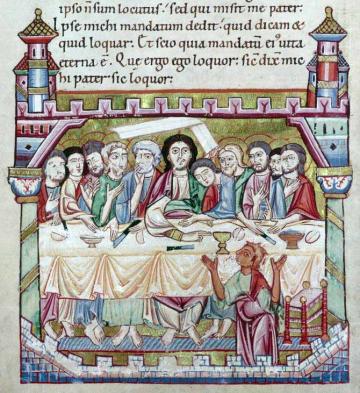 ipso n̄ sum locutus. sed qui misit me pater:
Ipse michi mandatum dedit. quid dicam &
quid loquar. Et scio quia mandatū ei' uita
eterna ē. Que ergo ego loquor: sic̄ dix̄ mi
hi pater sic loquor: